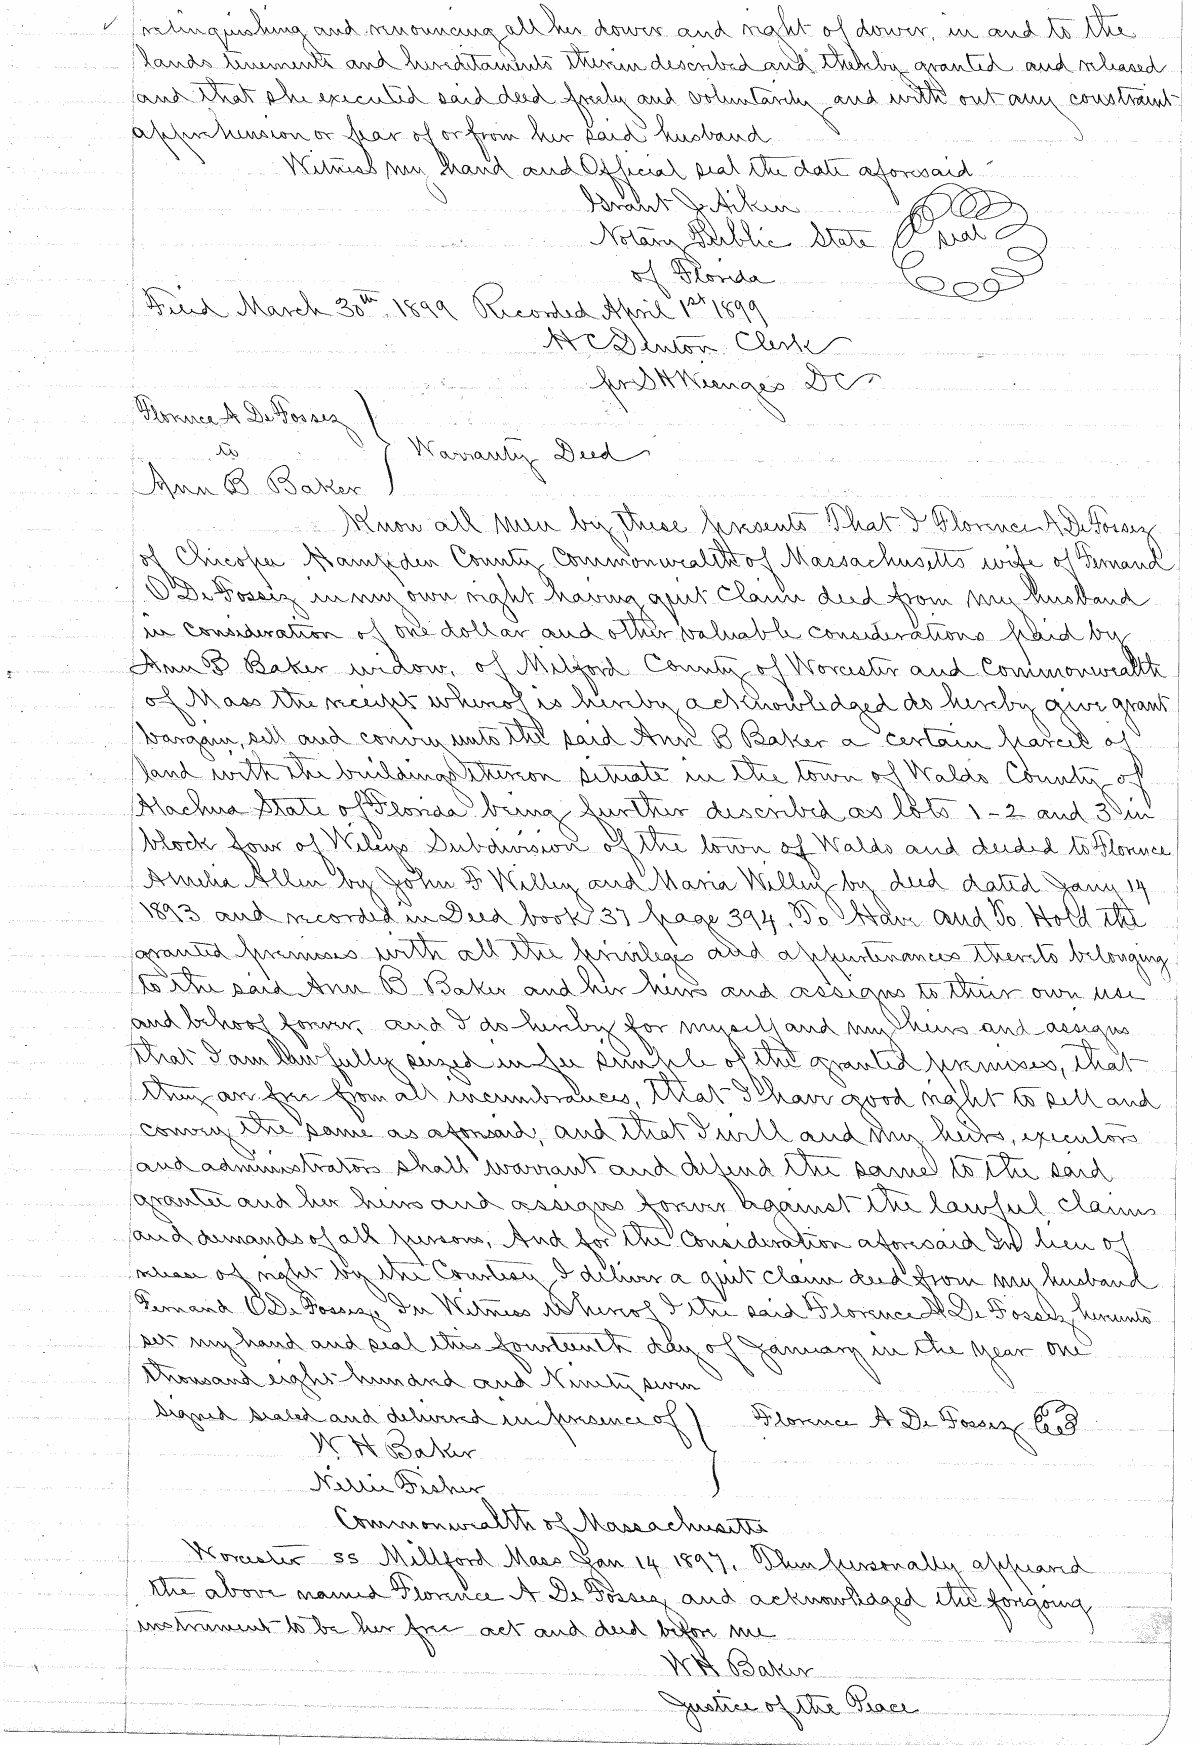 relinquishing and renouncing all her dower and right of dower, in and to the
lands tenements and hereditaments therein described and thereby granted and released
and that she executed said deed freely and voluntarily and with out any constraint
apprehension or fear of or from her said husband
Witness my hand and Official seal the date aforesaid
Grant J. Aiken
Notary Public State
seal
of Florida
Filed March 30th, 1899 Recorded April 1st 1899
H C Denton Clerk
per S H Wienges DC
Florence A De Fossez
to
Warranty Deed
Ann B Baker
Know all Men by these presents That I Florence A De Fossez
of Chicopee Hampden County Commonwealth of Massachusetts wife of Fernand
O De Fossez in my own right having quit Claim deed from my husband
in consideration of one dollar and other valuable considerations paid by
Ann B Baker widow, of Milford County of Worcester and Commonwealth
of Mass the receipt whereof is hereby acknowledged do hereby give grant
bargain, sell and convey unto the said Ann B Baker a certain parcel of
land with the buildings thereon situate in the town of Waldo County of
Alachua State of Florida being further described as lots 1-2 and 3 in
block four of Wileys Subdivision of the town of Waldo and deeded to Florence
Amelia Allen by John F Willey and Maria Willey by deed dated Jany 14
1893 and recorded in Deed book 37 page 394. To Have and To Hold the
granted premises with all the privileges and appurtenances thereto belonging
to the said Ann B Baker and her heirs and assigns to their own use
and behoof forever, and I do hereby for myself and my heirs and assigns
that I am lawfully seized in fee simple of the granted premises, that
they are free from all incumbrances, that I have good right to sell and
convey the same as aforesaid, and that I will and my heirs, executors
and administrators shall warrant and defend the same to the said
grantee and her heirs and assigns forever against the lawful claims
and demands of all persons, And for the Consideration aforesaid In lieu of
release of right by the Courtesy I deliver a quit claim deed from my husband
Fernand O De Fossez, In Witness Whereof I the said Florence A De Fossez hereunto
set my hand and seal this fourteenth day of January in the year one
thousand eight hundred and Ninety seven
Signed sealed and delivered in presence of Florence A De Fossez
W H Baker
Nellie Fisher
Commonwealth of Massachusetts
Worcester ss Millford Mass Jan 14 1897. Then personally appeared
the above named Florence A De Fossez and acknowledged the forgoing
instrument to be her free act and deed before me
W H Baker
Justice of the Peace